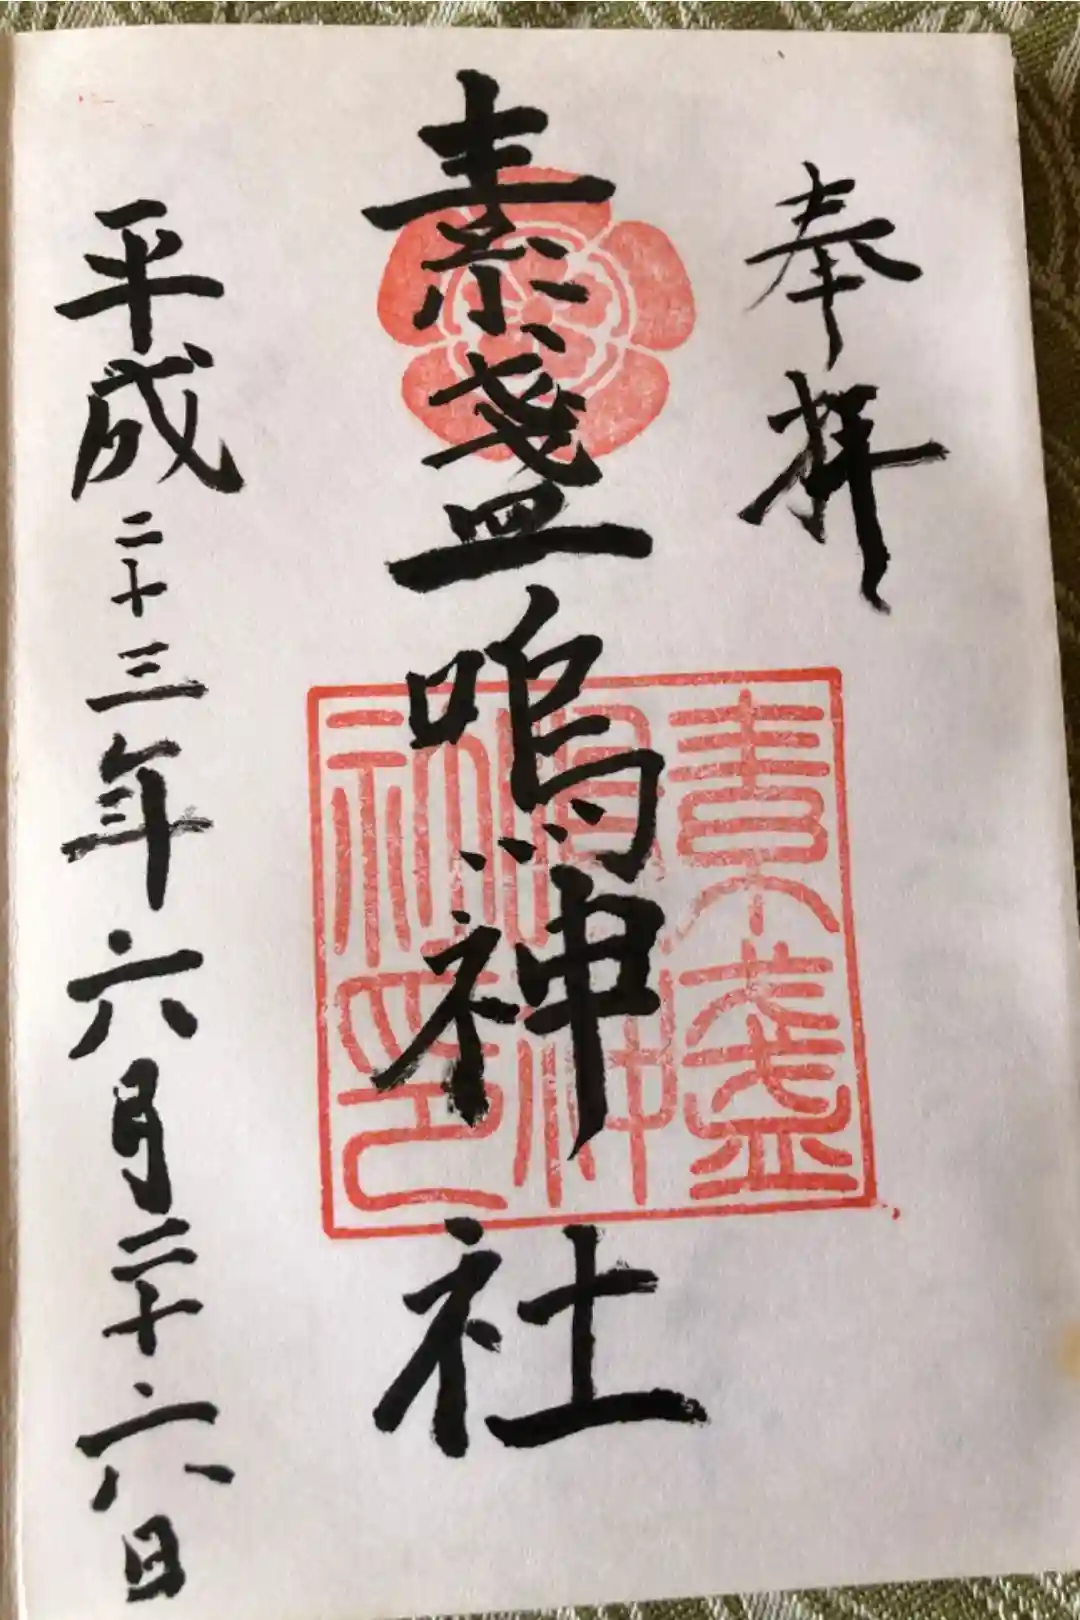 奉拝
素盞嗚神社
素盞
嗚神
社印
平成二十三年六月二十六日